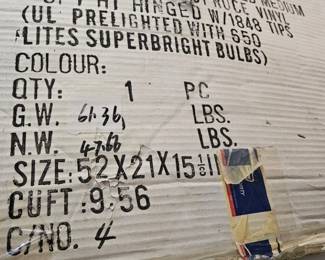 HINGED W/1848 TIPS
(UL PRELIGHTED WITH 650
LITES SUPERBRIGHT BULBS)
COLOUR:
QTY: 1 PC
G.W. 61.36 LBS.
N.W. 47.66 LBS.
SIZE:52X21X15 1/8 IN
CUFT:9.56
C/NO. 4